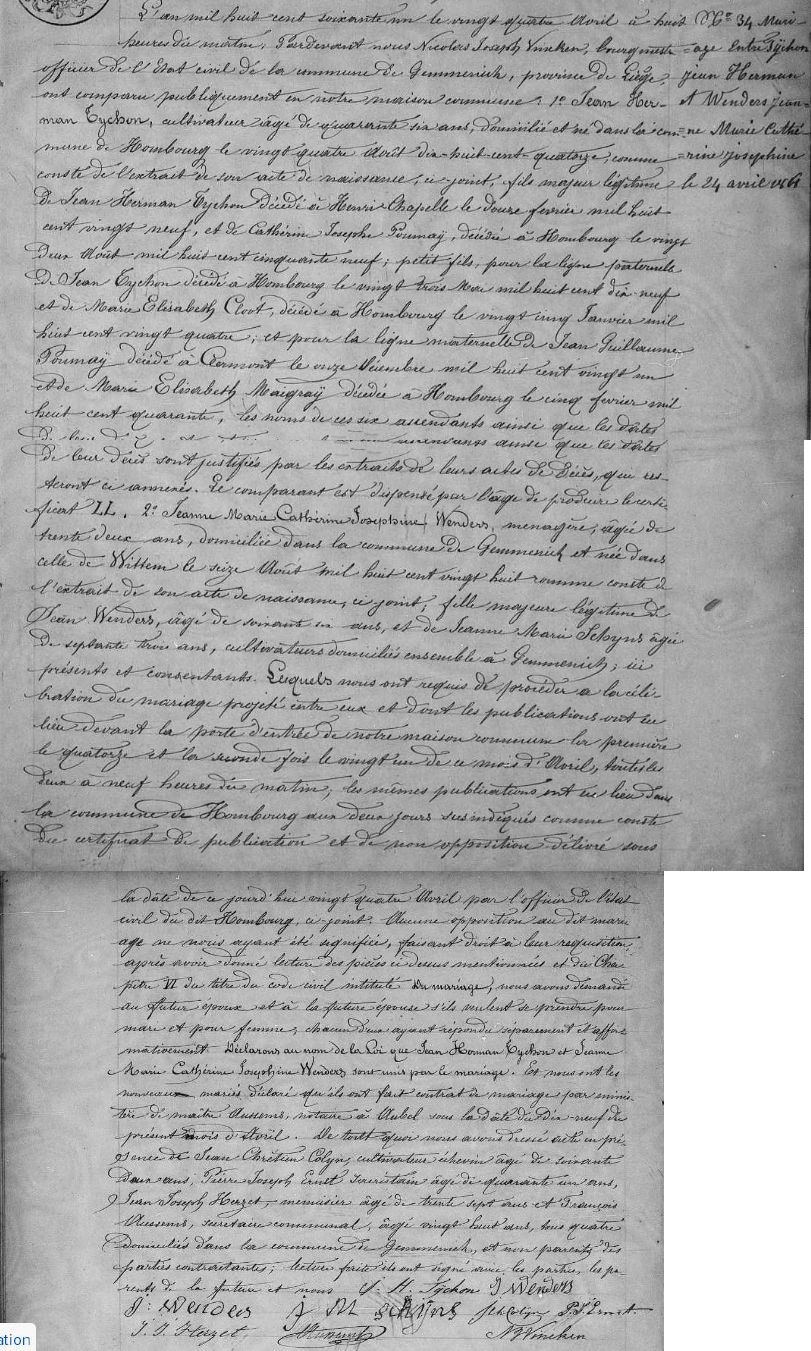 L'an mil huit cent soixante un le vingt quatre Avril à huit
heures du matin, Pardevant nous Nicolas Joseph Vincken, bourgmestre
officier de l'Etat civil de la commune de Gemmenich, province de Liége,
ont comparu publiquement en notre maison commune : 1º Jean Her-
man Tychon, cultivateur âgé de quarante six ans, domicilié et né dans la com-
mune de Hombourg le vingt quatre Août dix-huit-cent-quatorze, comme
conste de l'extrait de son acte de naissance, ci joint, fils majeur légitime
de Jean Herman Tychon décédé à Henri Chapelle le douze fevrier mil huit
cent vingt neuf, et de Cathérine Josephe Poumay, décédée à Hombourg le vingt
deux Août mil huit cent cinquante neuf ; petit fils, pour la ligne paternelle
de Jean Tychon décédé à Hombourg le vingt trois Mai mil huit cent dix neuf
et de Marie Elisabeth Cloot, décédé à Hombourg le vingt cinq Janvier mil
huit cent vingt quatre ; et pour la ligne maternelle de Jean Guillaume
Poumay décédé à Clermont le onze mil huit cent vingt un
et de Marie Elisabeth Maigray décédée à Hombourg le cinq fevrier mil
huit cent quarante, les noms de ces six ascendants ainsi que les dates
ascendants ainsi que les dates
de leur décès sont justifiés par les extraits de leurs actes de décès, qui res-
teront ci annexés. Le comparant est dispensé par l'âge de produire le certi-
ficat LL. 2º Jeanne Marie Cathérine Josephine Wenders, menagère, âgée de
trente deux ans, domiciliée dans la commune de Gemmenich et née dans
celle de Wittem le seize Août mil huit cent vingt huit comme conste de
l'extrait de son acte de naissance, ci joint, fille majeure légitime de
Jean Wenders, âgé de soixante ans, et de Jeanne Marie Schyns âgée
de septante trois ans, cultivateurs domiciliés ensemble à Gemmenich ; ici
présents et consentants. Lesquels nous ont requis de procéder à la célé-
bration du mariage projeté entre eux et dont les publications ont eu
lieu devant la porte d'entrée de notre maison commune la première
le quatorze et la seconde fois le vingt un de ce mois d'Avril, toutes les
deux à neuf heures du matin ; les mêmes publications ont eu lieu dans
la commune de Hombourg aux deux jours susindiqués comme conste
du certificat de publication et de non opposition délivré sous
Nº 34 Mari-
age entre Tychon
jean Herman
et Wenders jean-
=ne Marie Cathé-
=rine josephine
le 24 avril 1861
la date de ce jourd'hui vingt quatre Avril par l'officier de l'état
civil du dit Hombourg, ci-joint. Aucune opposition au dit mari-
age ne nous ayant été signifiée, faisant droit à leur requisition,
après avoir donné lecture des pièces ci dessus mentionnées et du Cha-
pitre VI du titre du code civil intitulé Du mariage, nous avons demandé
au futur époux et à la future épouse s'ils veulent se prendre pour
mari et pour femme, chacun d'eux ayant répondu séparement et affir-
mativement Déclarons au nom de la Loi que Jean Herman Tychon et Jeanne
Marie Cathérine Josephine Wenders sont unis par le mariage. Et nous ont les
nouveaux mariés déclaré qu'ils ont fait contrat de mariage par minis-
tère de maître Aussems, notaire à Aubel sous la date du dix-neuf du
présent mois d'Avril. De tout quoi nous avons dressé acte en pré-
sence de Jean Chrétien Colyn, cultivateur échevin âgé de soixante
deux ans, Pierre Joseph Ernst secretaire âgé de quarante un ans,
Jean Joseph Herzet, menuisier âgé de trente sept ans et François
Aussems, secretaire communal, âgé vingt huit ans, tous quatre
domiciliés dans la commune de Gemmenich, et non parents des
parties contractantes ; lecture faite ils ont signé avec les parties, les pa-
rents de la future et nous J. H. Tychon J Wenders
J: Wenders J M Schyns Jch Colyn P. J. Ernst
J. J. Herzet Aussems NJ Vincken
ation